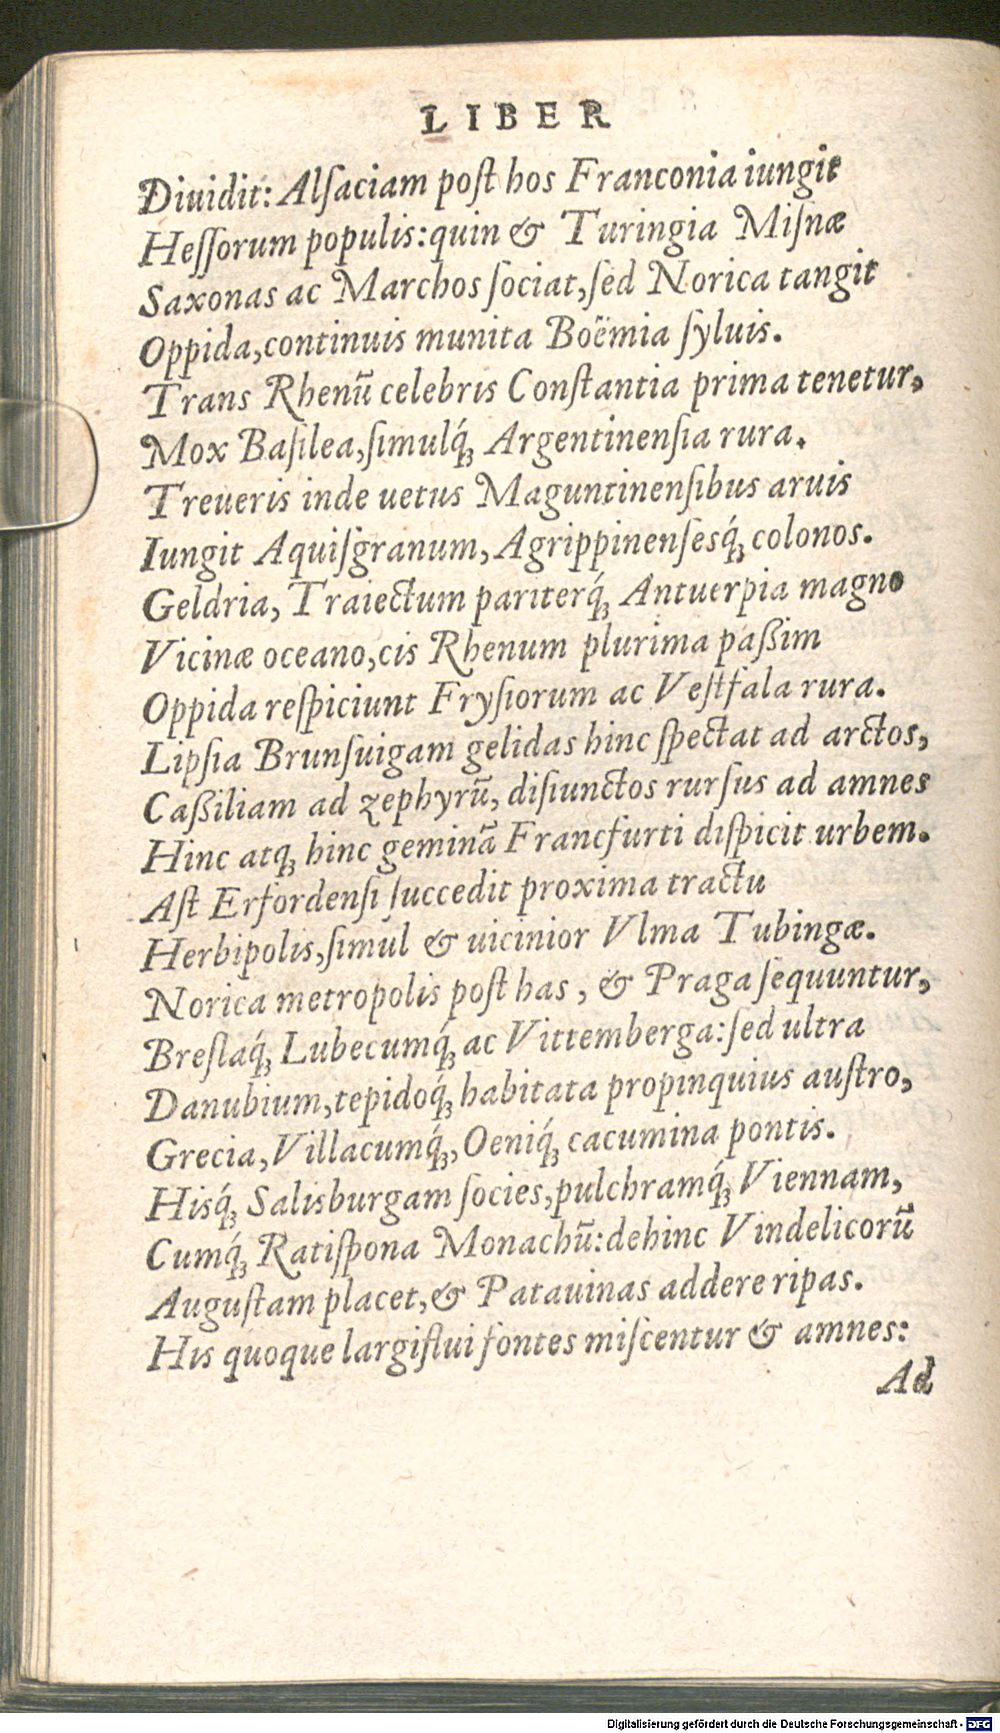 LIBER
Diuidit: Alſaciam poſt hos Franconia iungit
Heſſorum populis: quin & Turingia Miſnæ
Saxonas ac Marchos ſociat, ſed Norica tangit
Oppida, continuis munita Boëmia ſyluis.
Trans Rhenū celebris Conſtantia prima tenetur,
Mox Baſilea, ſimulq́ꝫ Argentinenſia rura.
Treueris inde uetus Maguntinenſibus aruis
Iungit Aquiſgranum, Agrippinenſesq́ꝫ colonos.
Geldria, Traiectum pariterq́ꝫ Antuerpia magno
Vicinæ oceano, cis Rhenum plurima paßim
Oppida reſpiciunt Fryſiorum ac Veſtfala rura.
Lipſia Brunſuigam gelidas hinc ſpectat ad arctos,
Caßiliam ad zephyrū, diſiunctos rurſus ad amnes
Hinc atqꝫ hinc geminā Francfurti diſpicit urbem.
Aſt Erfordenſi ſuccedit proxima tractu
Herbipolis, ſimul & uicinior Vlma Tubingæ.
Norica metropolis poſt has, & Praga ſequuntur,
Breſlaq́ꝫ Lubecumq́ꝫ ac Vittemberga: ſed ultra
Danubium, tepidoq́ꝫ habitata propinquius auſtro,
Grecia, Villacumq́ꝫ, Oeniq́ꝫ cacumina pontis.
Hisq́ꝫ Salisburgam ſocies, pulchramq́ꝫ Viennam,
Cumq́ꝫ Ratiſpona Monachū: dehinc Vindelicorū
Auguſtam placet, & Patauinas addere ripas.
His quoque largiflui fontes miſcentur & amnes:
Ad
Digitalisierung gefördert durch die Deutsche Forschungsgemeinschaft - DFG